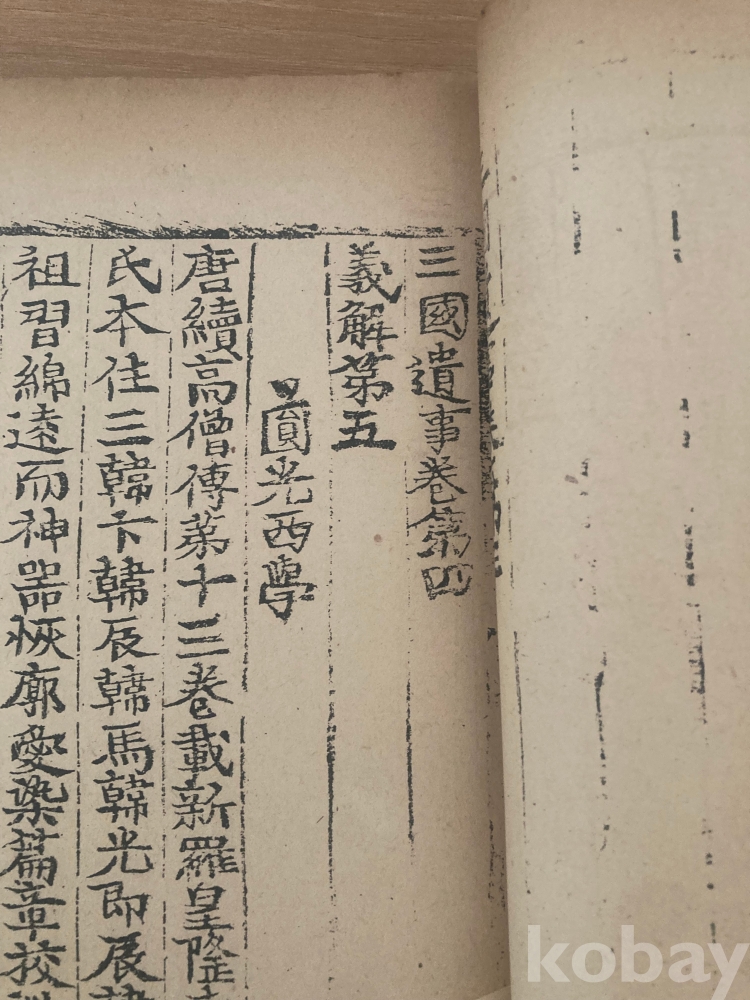 三國遺事卷第四
義解第五
圓光西學
唐續高僧傳第十三卷載新羅皇隆
氏本住三韓卞韓辰韓馬韓光即辰韓
祖習綿遠而神器恢廓愛染篇章校
kobay